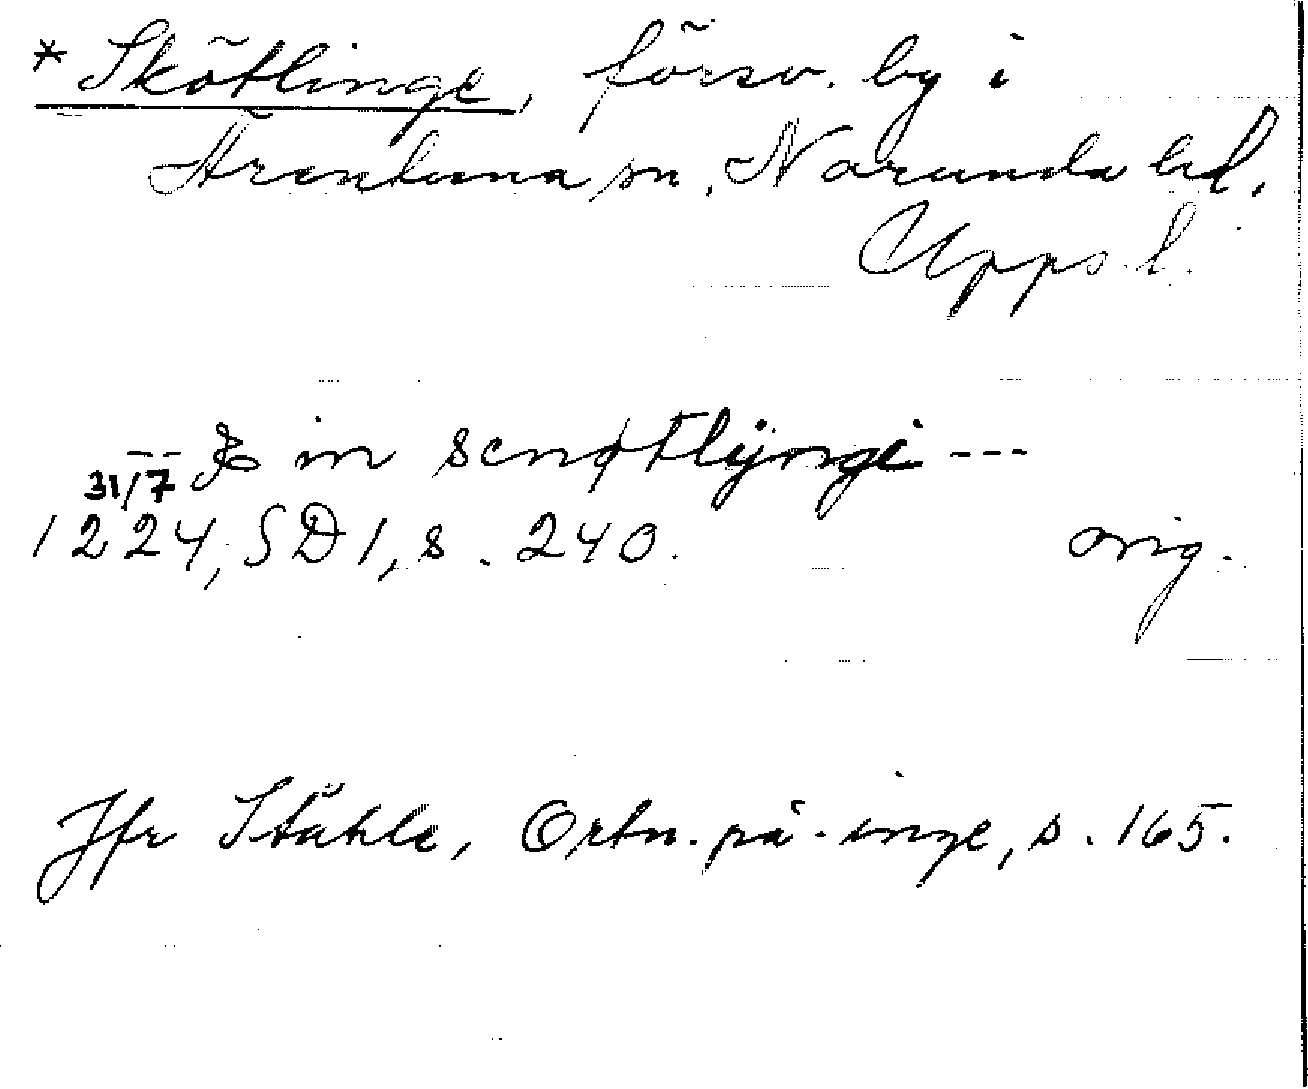 *Skötlinge, försv. by i
Ärentuna sn, Norunda hd,
Upps. l.
--- & in scnøtlÿngi ---
31/7
1224, SD 1, s. 240. orig.
Jfr Ståhle, Ortn. på -inge, s. 165.